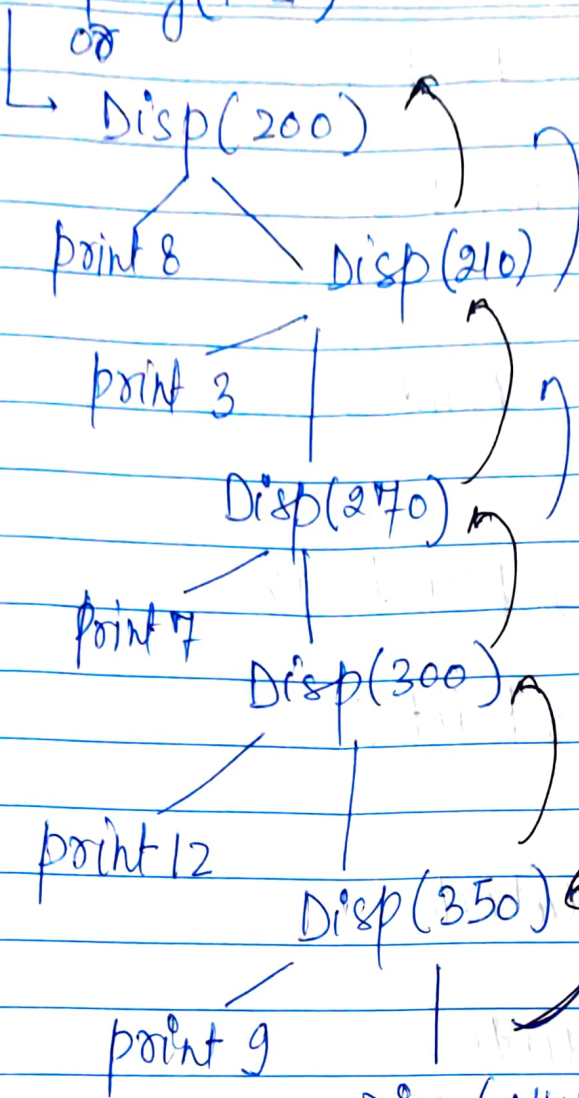 or
Disp(200)
print 8 Disp(210)
print 3
Disp(270)
print 7
Disp(300)
print 12
Disp(350)
print 9